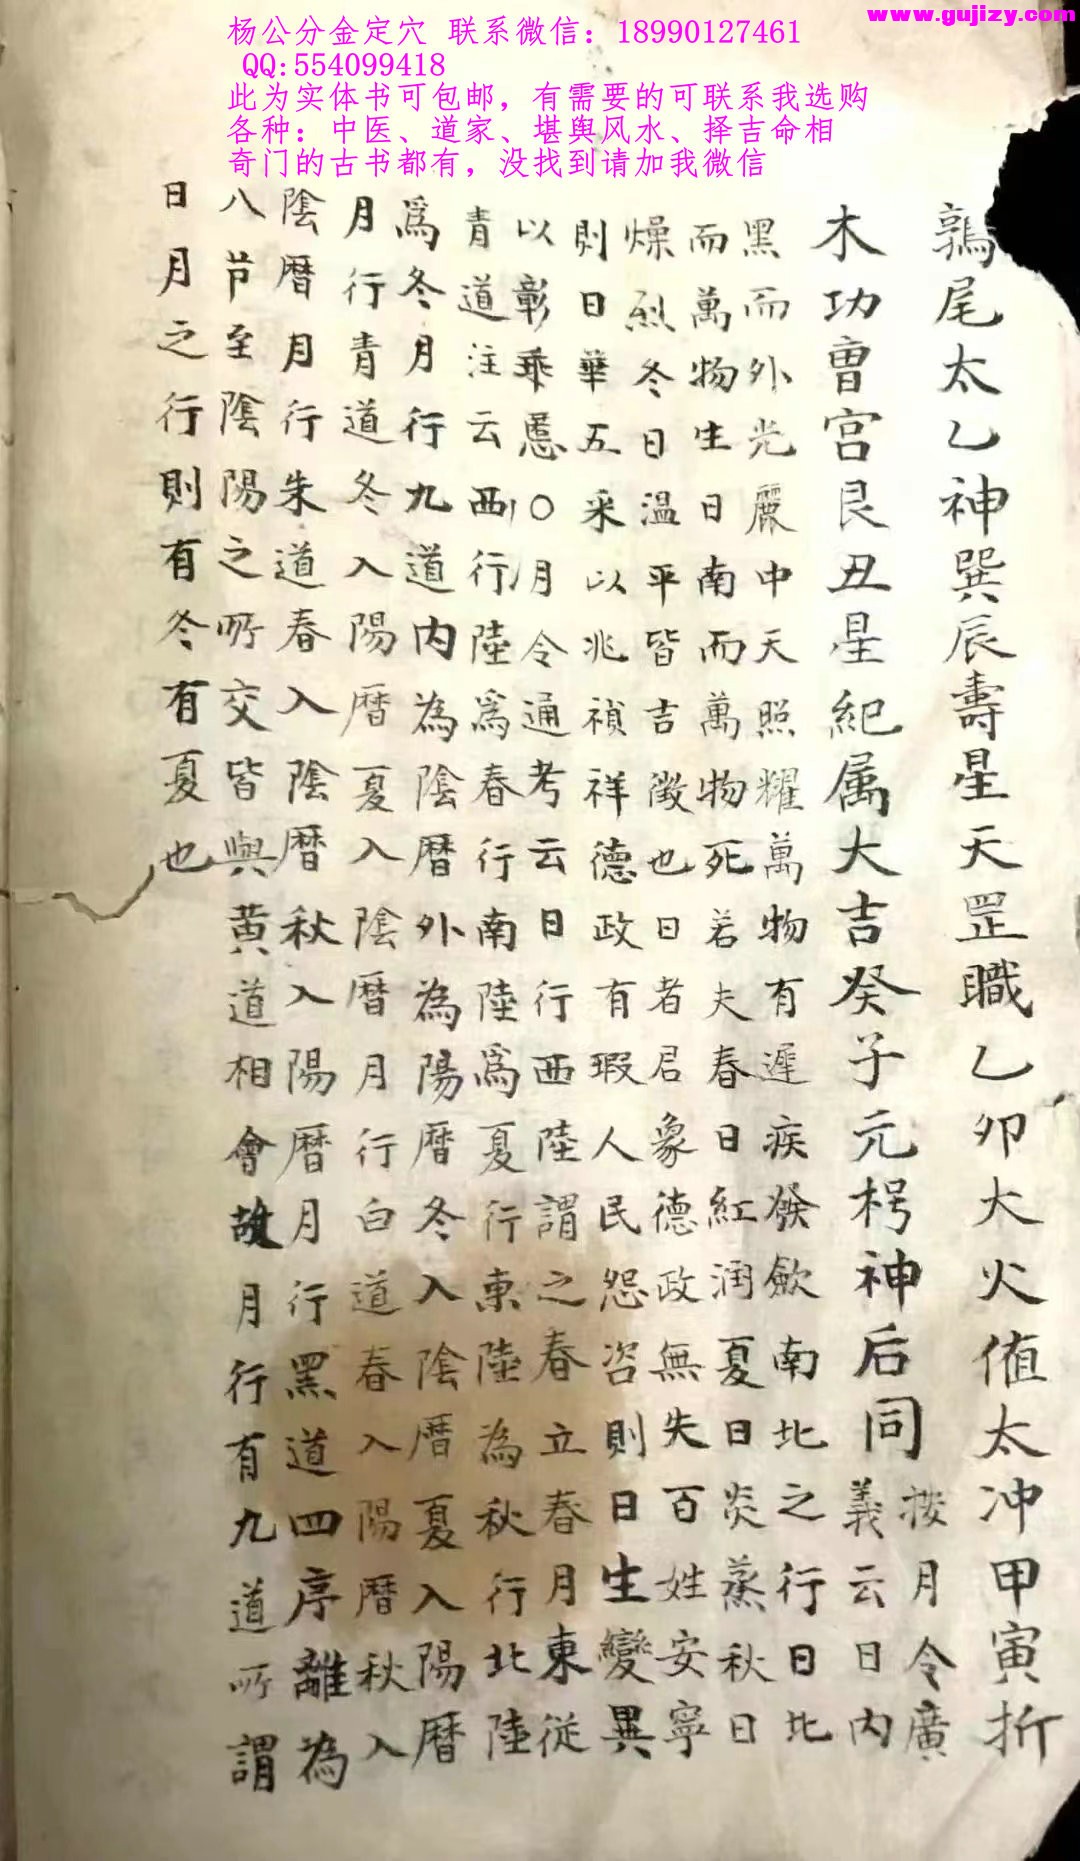 www.gujizy.com
杨公分金定穴 联系微信：18990127461
QQ:554099418
此为实体书可包邮，有需要的可联系我选购
各种：中医、道家、堪舆风水、择吉命相
奇门的古书都有，没找到请加我微信
鶉尾太乙神巽辰壽星天罡職乙卯大火值太冲甲寅折
木功曺宫艮丑星紀属大吉癸子元枵神后同
按月令廣
義云日内
黑而外光麗中天照耀萬物有遲疾發歛南北之行日北
而萬物生日南而萬物死若夫春日紅润夏日炎蒸秋日
燥烈冬日温平皆吉徵也日者君象德政無失百姓安寧
則日華五采以兆禎祥德政有瑕人民怨咨則日生變異
以彰乖慝〇月令通考云日行西陸謂之春立春月東從
青道注云西行陸爲春行南陸爲夏行東陸為秋行北陸
爲冬月行九道内為陰暦外為陽暦冬入陰暦夏入陽暦
月行青道冬入陽暦夏入陰暦月行白道春入陽暦秋入
陰暦月行朱道春入陰暦秋入陽暦月行黑道四序離為
八节至陰陽之所交皆與黄道相會故月行有九道所謂
日月之行則有冬有夏也